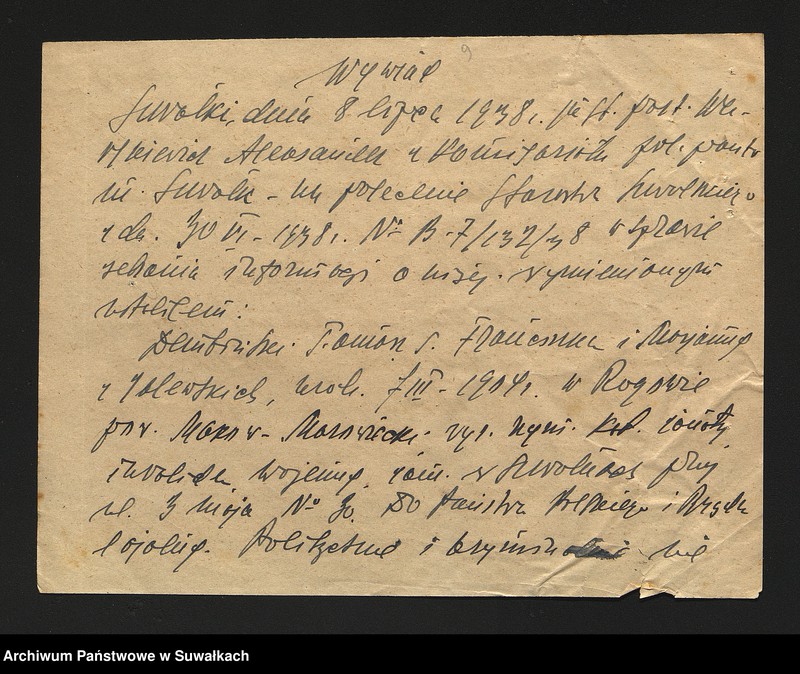 9
Wywiad
Suwałki, dnia 8 lipca 1938 r. post.
Aleksander z
m. Suwałk - na polecenie Starostwa Suwalskiego
z dn. 30 VI - 1938 r. No B-7/132/38 w sprawie
zebrania informacji o niżej wymienionym
ustaliłem:
Dembiński Roman s. Franciszka i Marjanny
z Zalewskich, urodz. 7 III - 1904 r. w Rogowie
pow. Maków-Mazowiecki wyz. rzym. kat. żonaty
inwalida wojenny, zam. w Suwałkach przy
ul. 3 maja No 30. Do Państwa Polskiego i Rządu
lojalny. Politycznie i nie
Archiwum Państwowe w Suwałkach